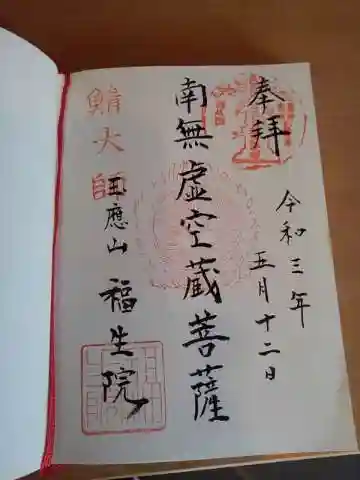 奉拝
令和三年
五月十二日
南無虚空蔵菩薩
鯖大師
玉應山
福生院